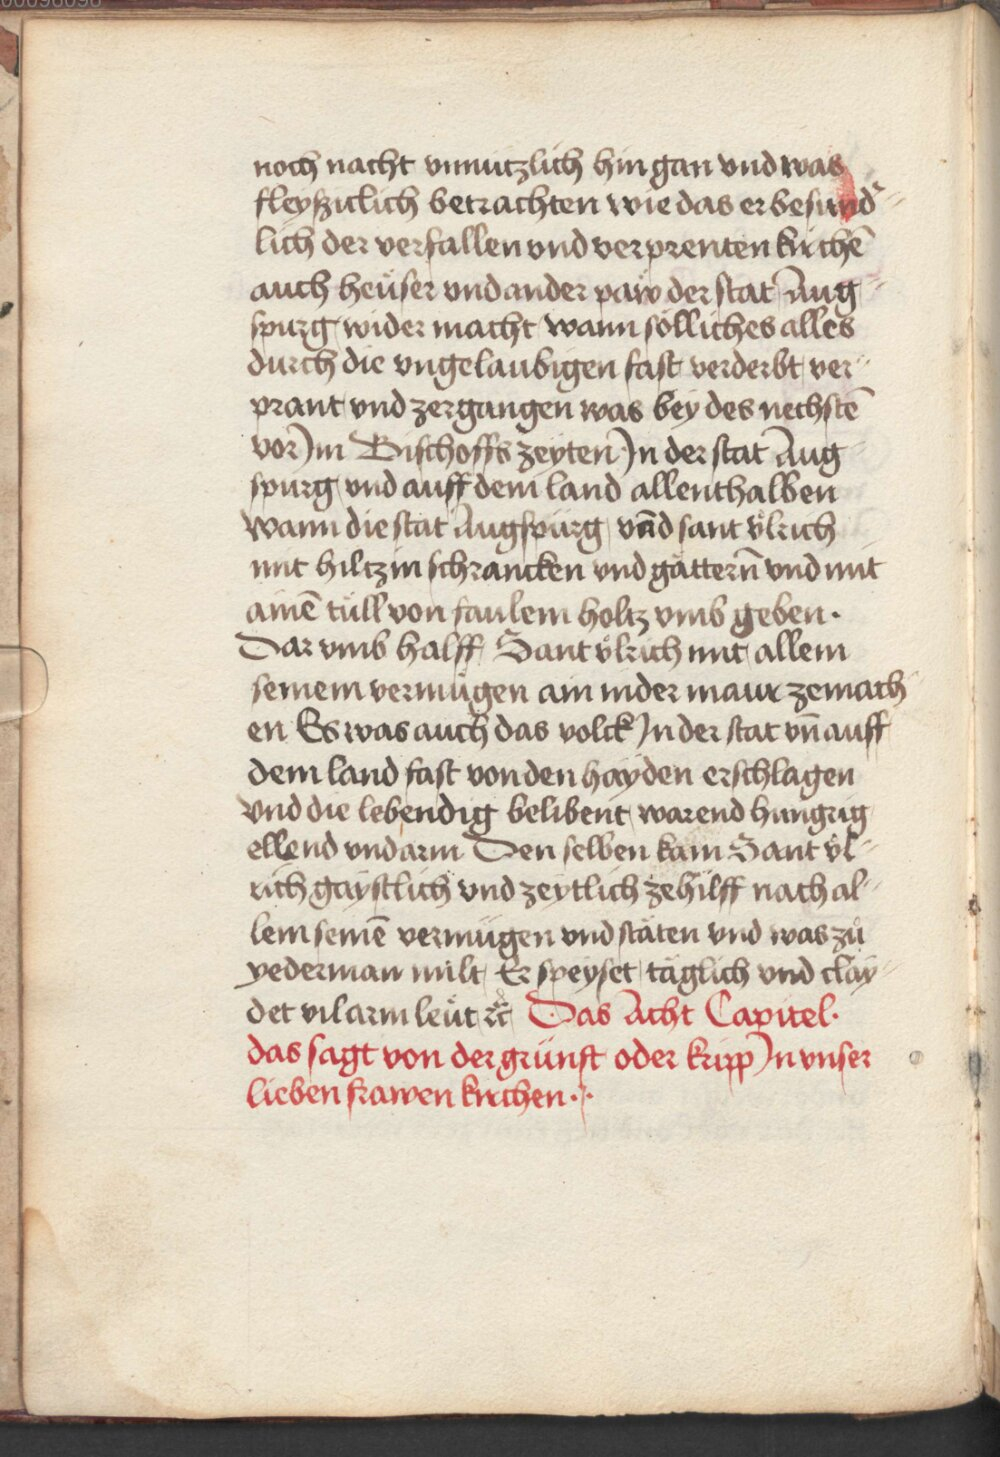 noch nacht vnnutzlich hin gan vnd was
fleyßiclich betrachten wie das er besund̾⸗
lich der verfallen vnd verprenten kirchē
auch heüser vnd ander paw der stat Aug⸗
spurg wider macht wann sölliches alles
durch die vngelaubigen fast verderbt ver⸗
prant vnd zergangen was bey des nechstē
vor Jm Bischoffs zeyten Jn der stat Aug
spurg vnd auff dem land allenthalben
wann die stat Augspurg vnd sant vͦlrich
mit hiltzin schrancken vnd gätterñ vnd mit
ainē tüll von faulem holtz vmb geben·
Dar vmb halff Sant vͦlrich mit allem
seinem vermügen ain nider maur zemach
en Es was auch das volck Jn der stat vñ auff
dem land fast von den hayden erschlagen
vnd die lebendig belibent warend hungrig
ellend vnd arm Den selben kam Sant vͦl⸗
rich gaystlich vnd zeytlich ze hilff nach al⸗
lem seinē vermügen vnd stäten vnd was zů
yederman milt Er speyset täglich vnd clay⸗
det vil arm leüt ꝛc̄ Das Acht Capitel·
das sagt von der grunft oder kripp Jn vnser
lieben frawen kirchen·